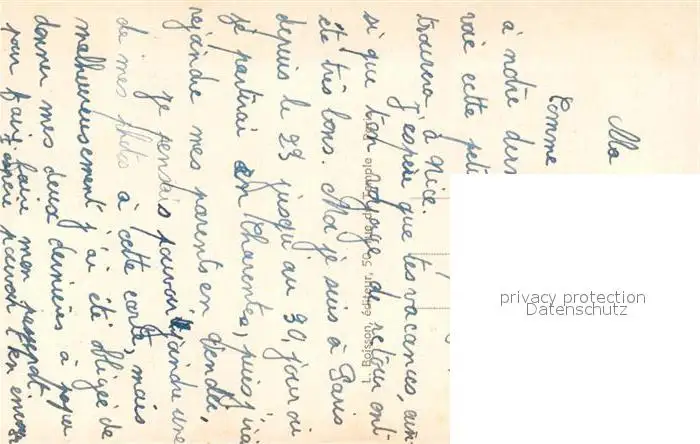 Ma
Comme
à notre der
voie cette peti
trouvera à Nice.
J'espère que tes vacances, ain-
si que ton voyage de retour ont
été très bons. Moi je suis à Paris
depuis le 23 jusqu'au 30, jour où
je partirai en Charente, puis j'irai
rejoindre mes parents en Vendée,
Je pensais pouvoir joindre une
de mes photos à cette carte, mais
malheureusement j'ai été obligée de
donner mes deux dernières à papa
pour faire faire mon passeport.
pouvoir t'en envoy
L. Boisson, éditeur, 50, Rue du Temple, Paris
privacy protection
Datenschutz